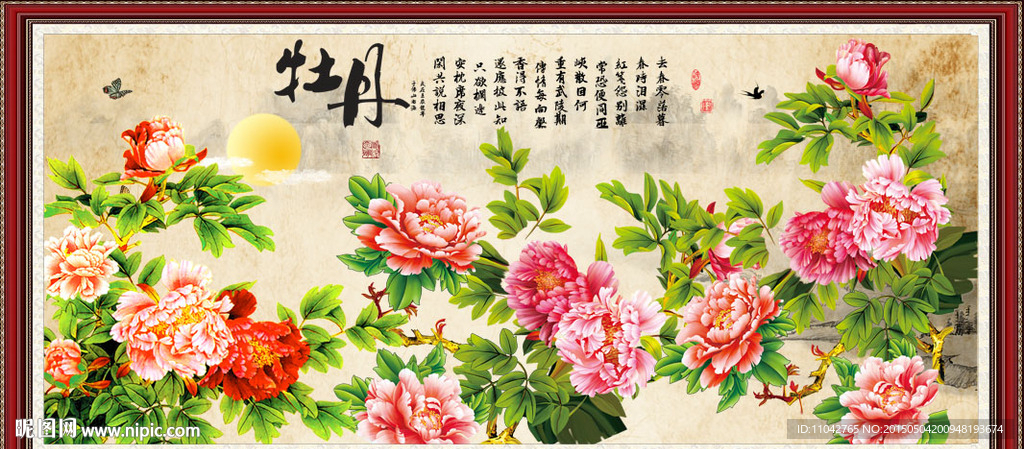 牡丹
去春零落暮
春時泪濕
紅箋怨别離
常恐便同巫
峽散因何
重有武陵期
傳情每向馨
香得不語
還應彼此知
只欲欄邊
安枕席夜深
閑共説相思
昵图网 www.nipic.com
ID:11042765 NO:20150504200948193674